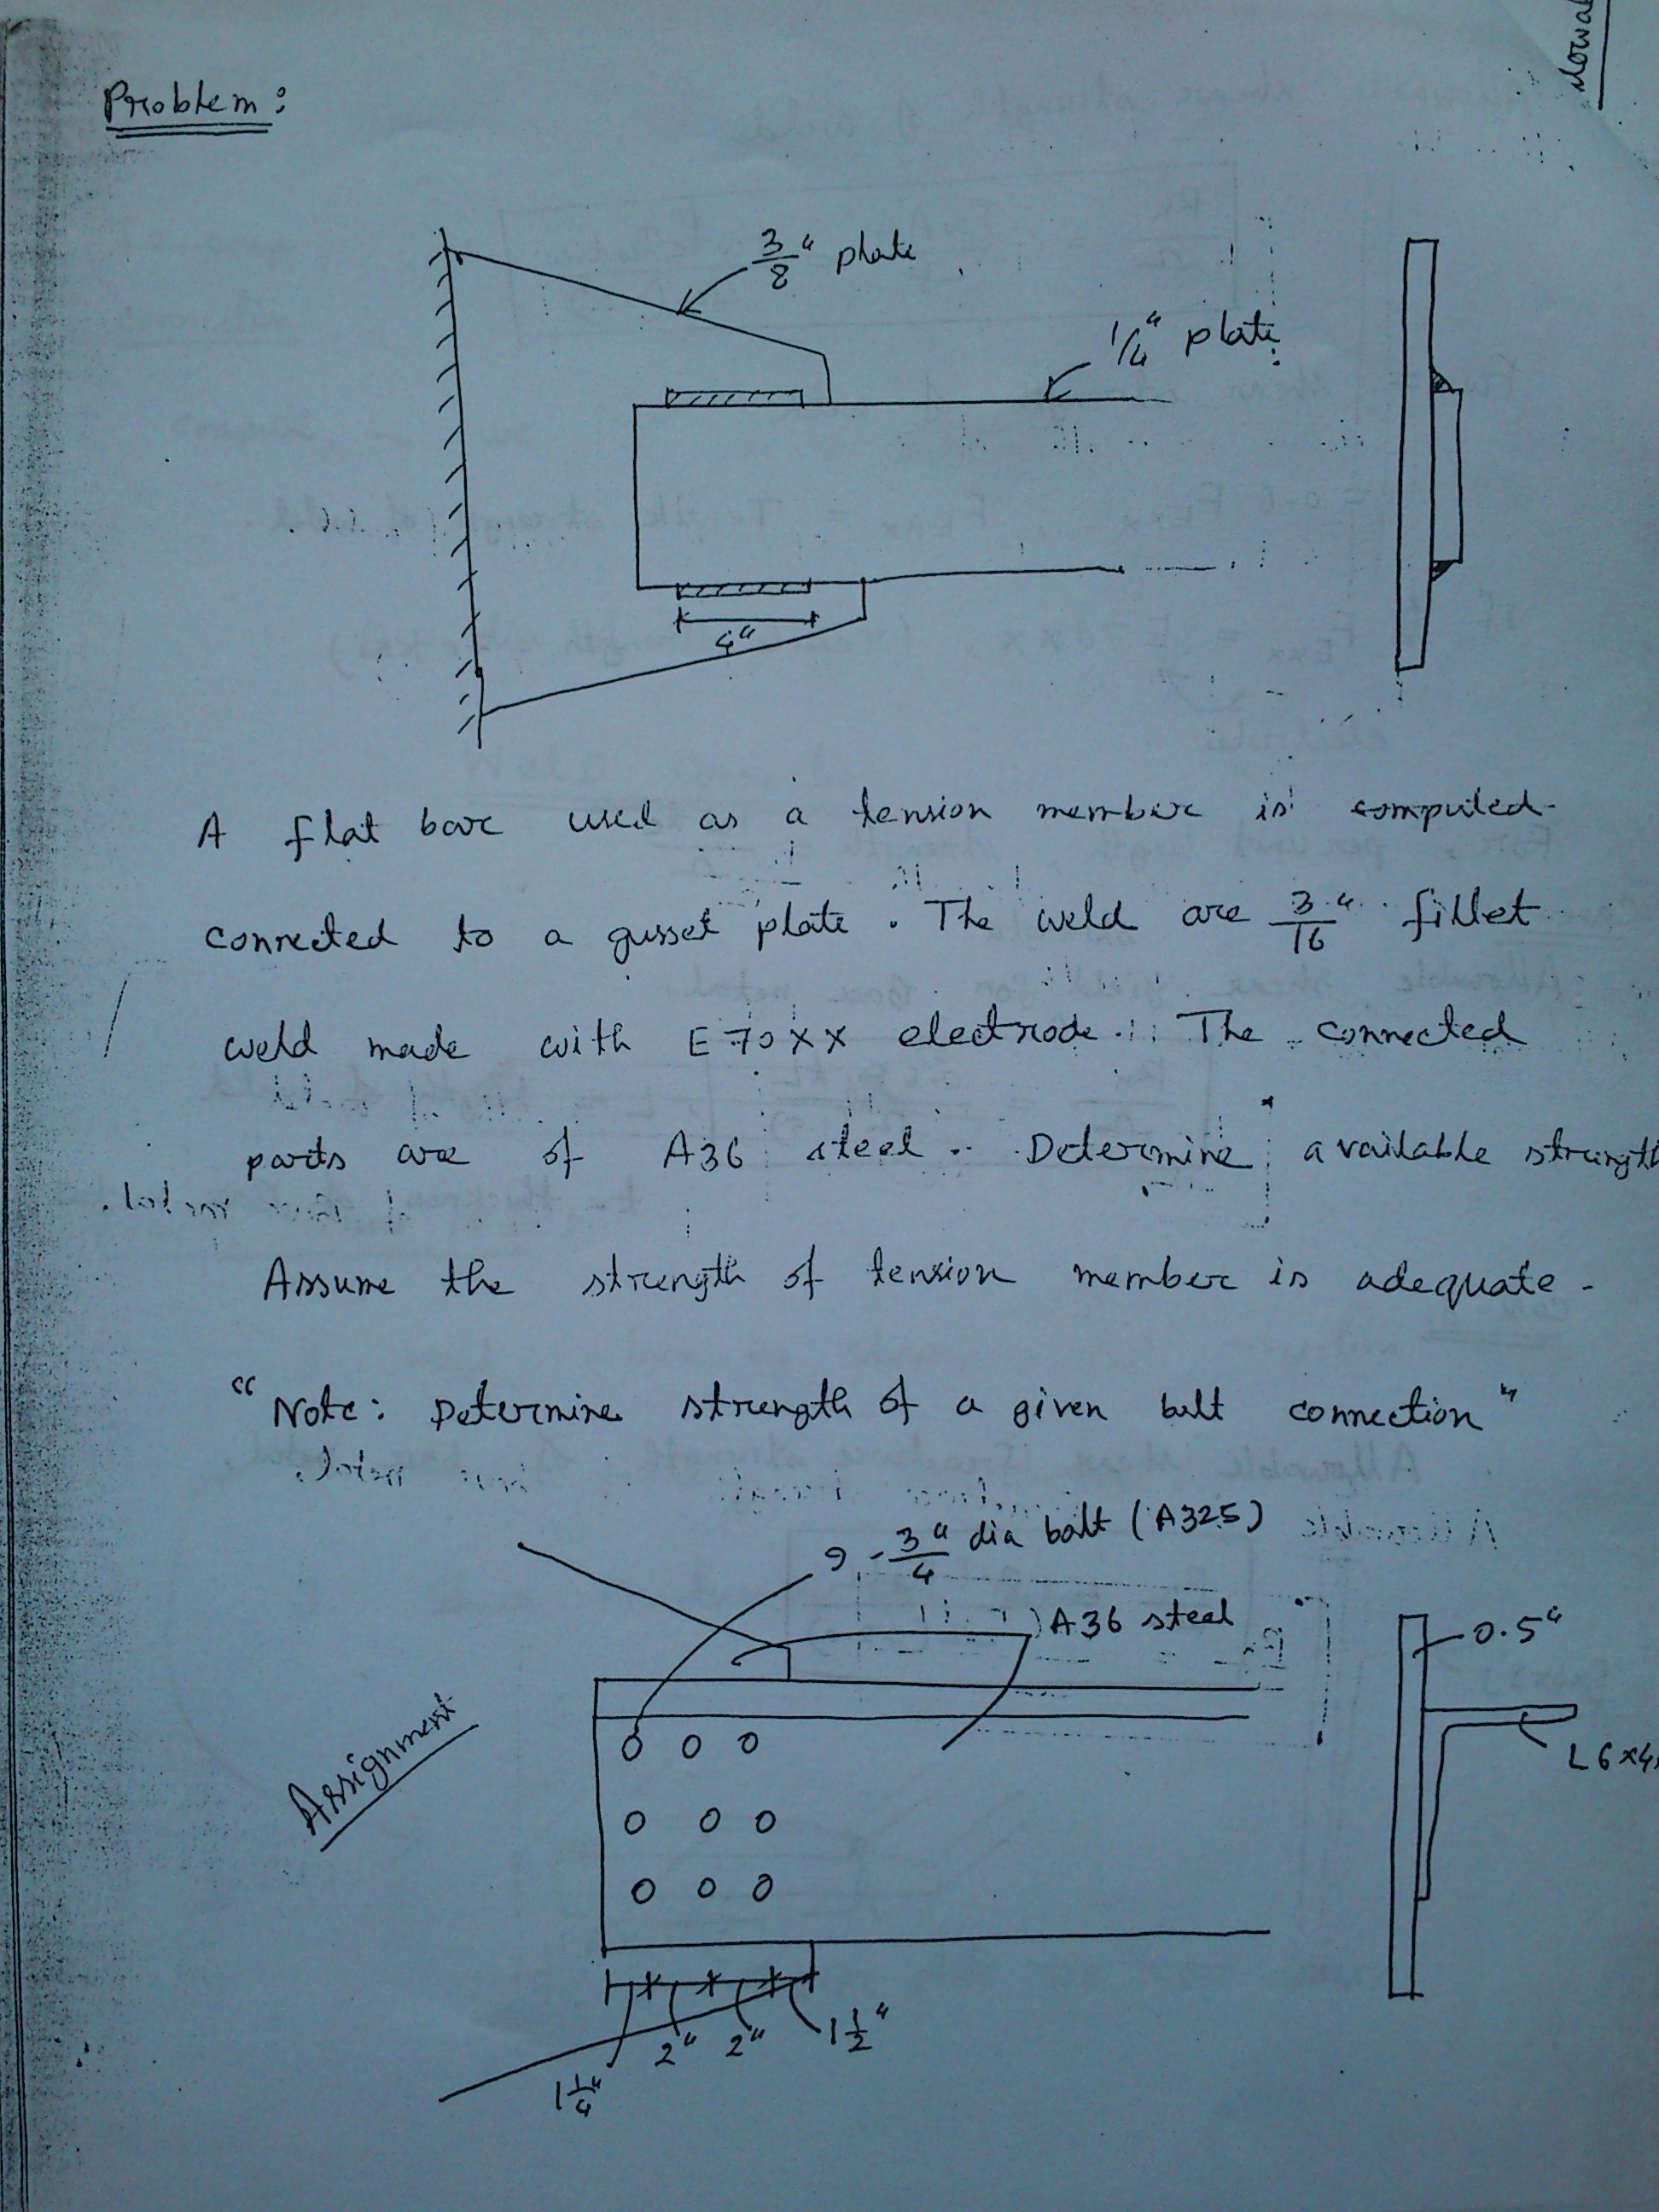 Problem:
3/8" plate
1/4" plate
4"
A flat bar used as a tension member is computed
connected to a gusset plate. The weld are 3/16" fillet
weld made with E70XX electrode. The connected
parts are of A36 steel. Determine available strength
Assume the strength of tension member is adequate.
"Note: Determine strength of a given bolt connection"
9 - 3/4" dia bolt (A325)
A36 steel
0.5"
L6x4x
Assignment
2" 2" 1 1/2"
1 1/4"